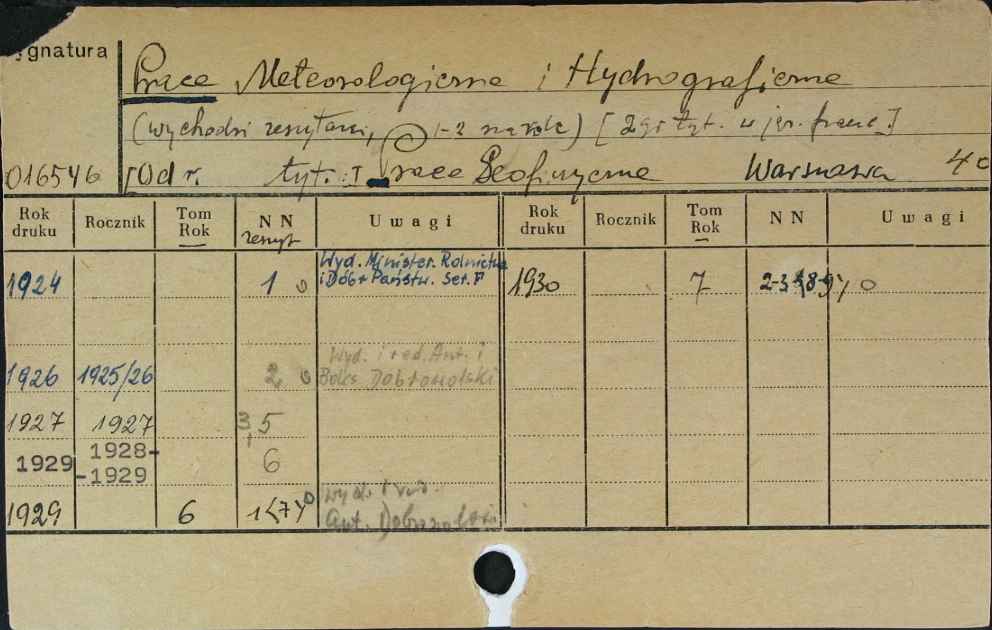 ygnatura
Prace Meteorologiczne i Hydrograficzne
(wychodzi zeszytami, 1-2 na rok) [2gi tyt. w jęz. franc.]
016546 [Od r. tyt.: Prace Geofizyczne Warszawa 4o
Rok druku Rocznik Tom Rok NN zeszyt Uwagi Rok druku Rocznik Tom Rok NN Uwagi
1924 1 o Wyd. Minister. Rolnictwa i Dóbr Państw. Ser. F 1930 7 2-3 o
1926 1925/26 2 o Wyd. i red. Ant. i Bolesł. Dobrowolski
1927 1927 3, 5
1929 1928-
-1929 6
1929 6 1 <7> o Wyd. i red.
Ant. Dobrowolski